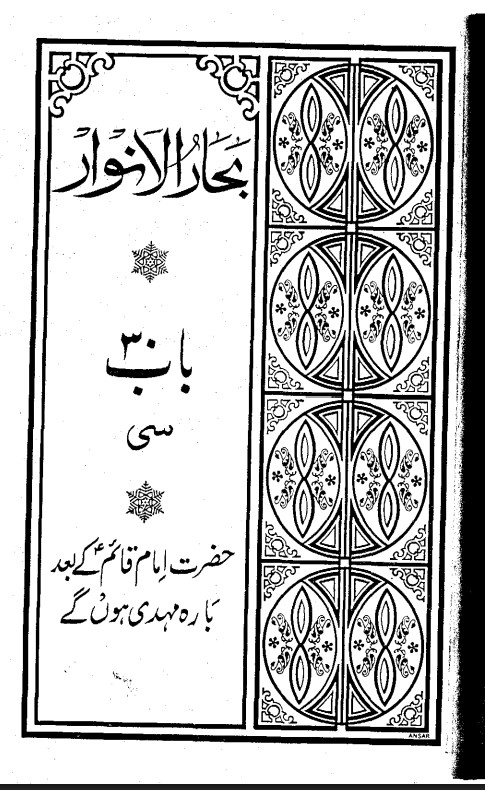 بحار الانوار
باب ۳۰
سی
حضرت امام قائمؑ کے بعد
بارہ مہدی ہوں گے
ANSAR